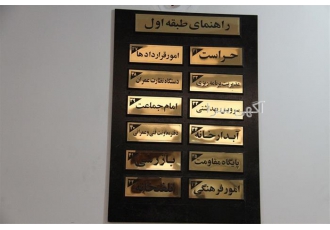 راهنمای طبقه اول
حراست
امور قراردادها
دستگاه نظارت عمران
سرویس بهداشتی
امام جماعت
آبدارخانه
دفتر معاونت فنی و عمرانی
پایگاه مقاومت
بازرسی
امور فرهنگی